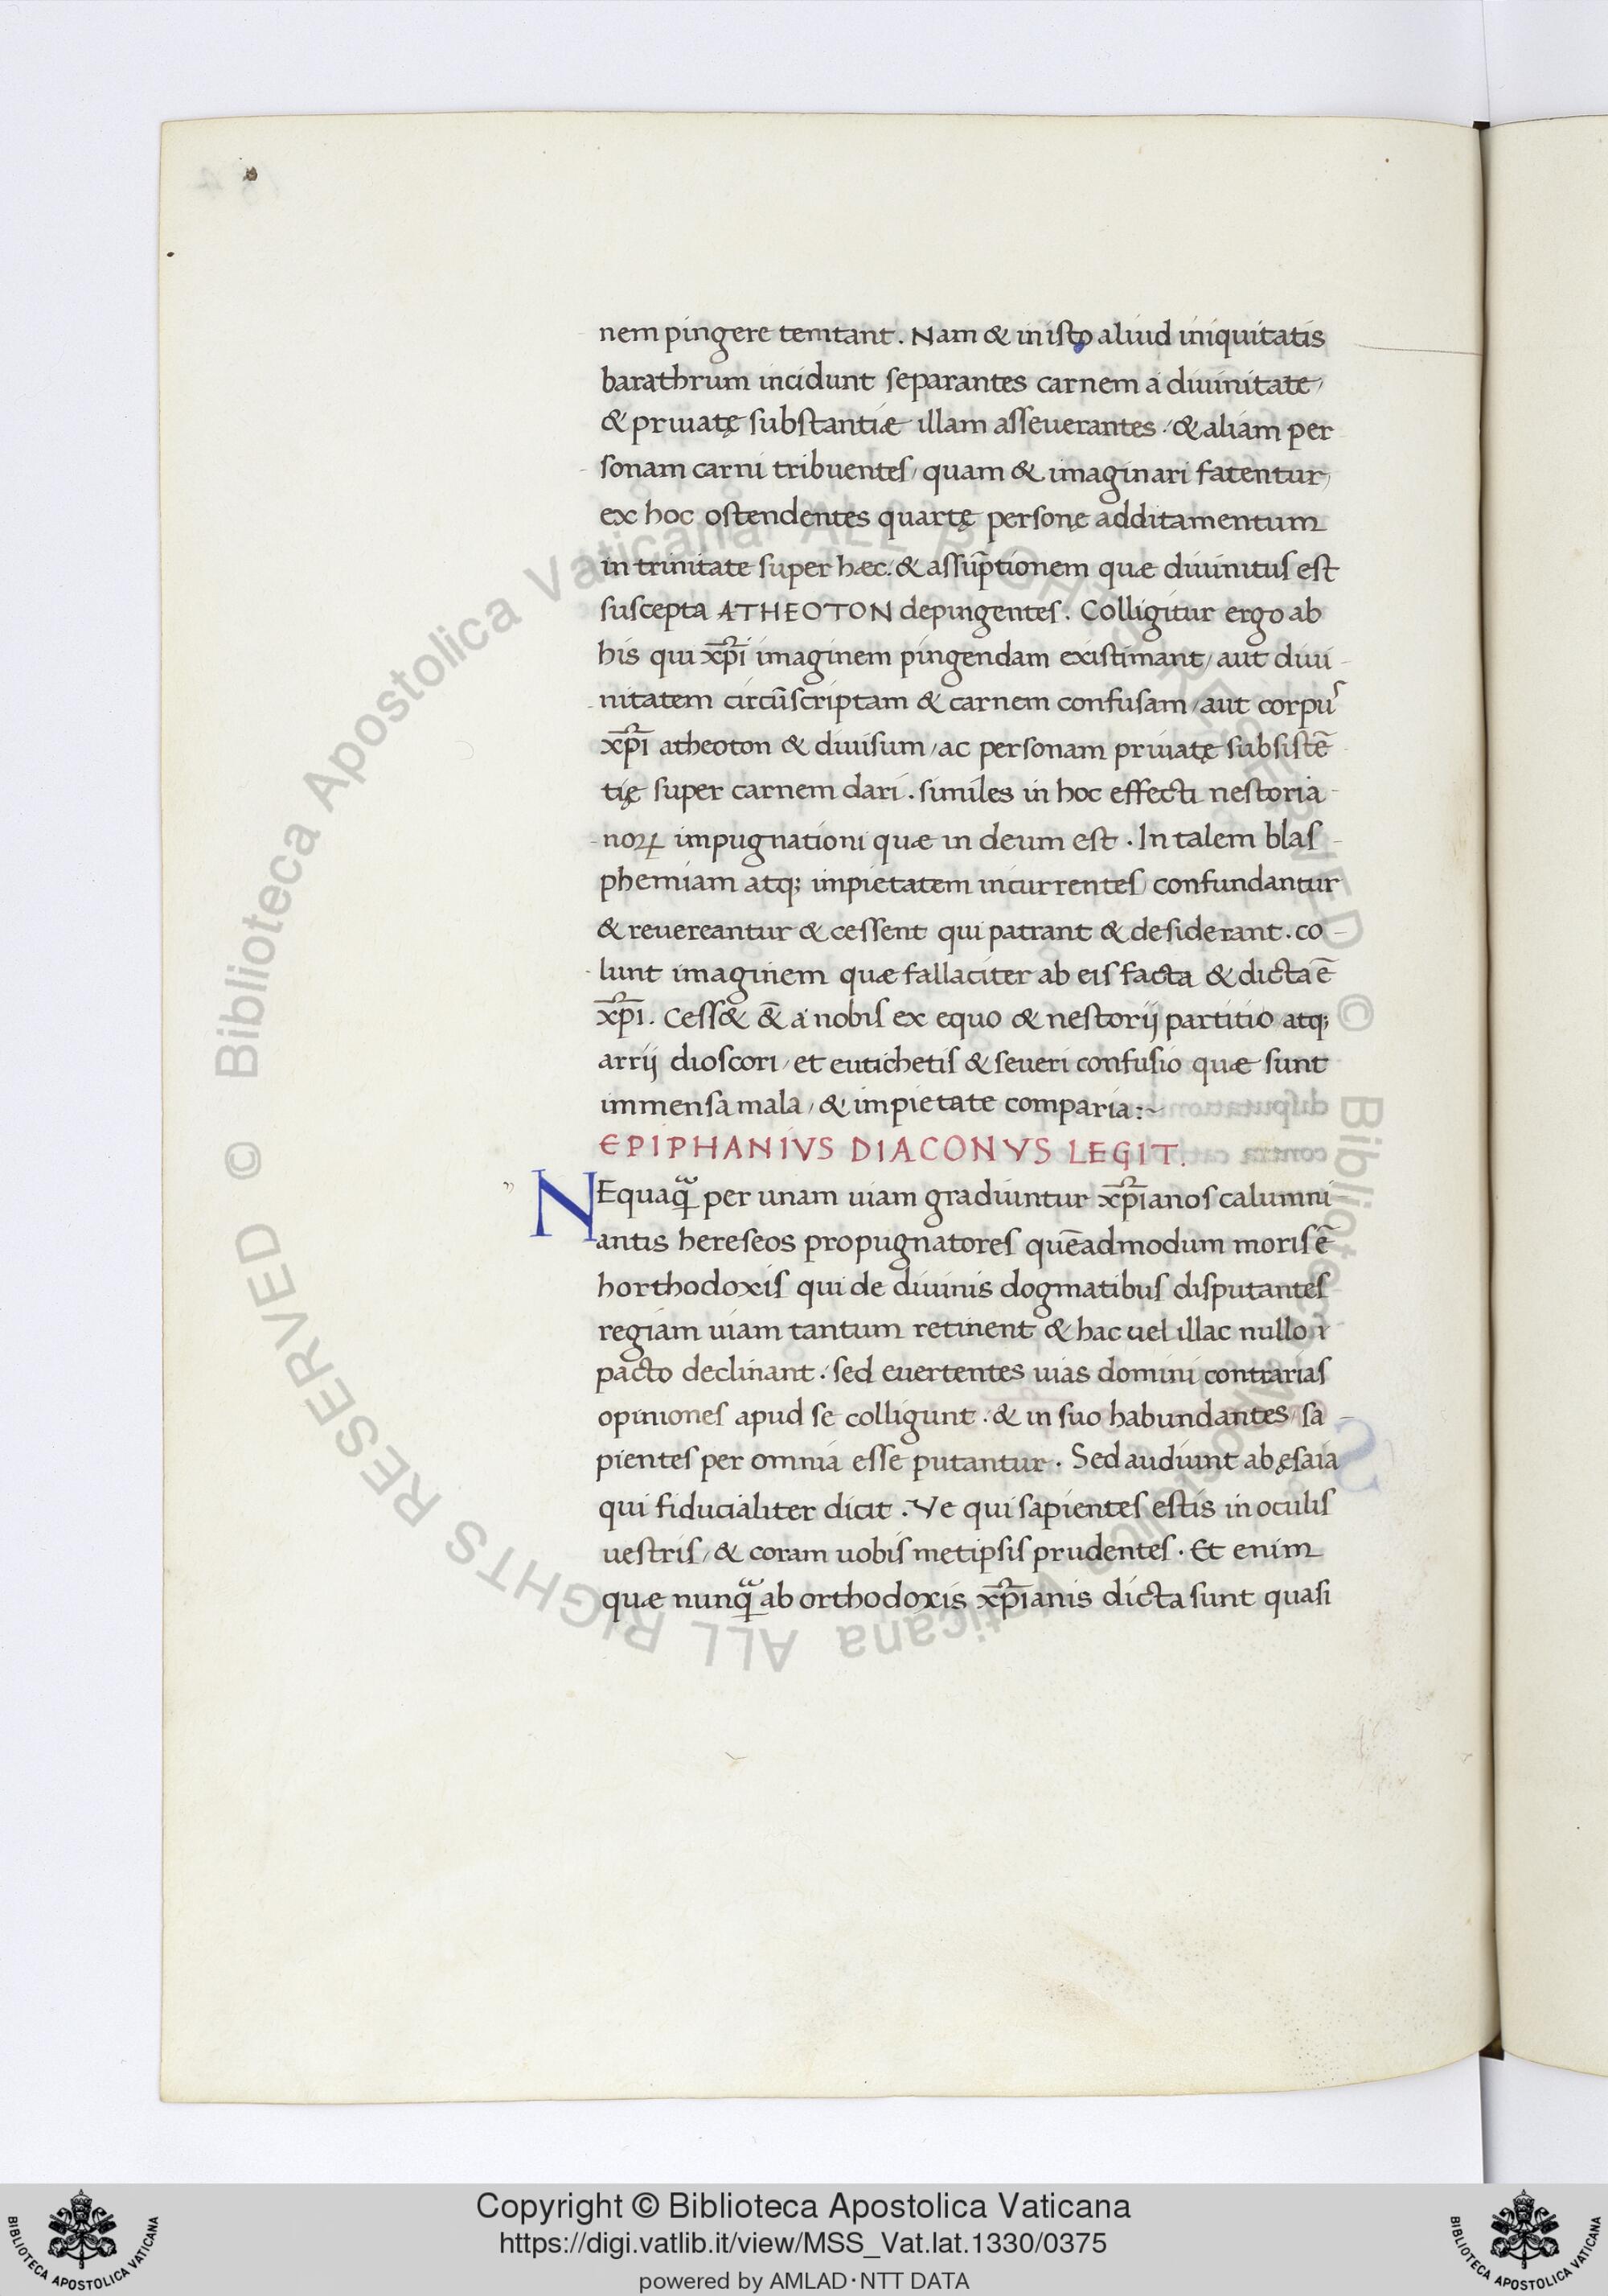 nem pingere temtant. Nam & in isto aliud iniquitatis
barathrum incidunt separantes carnem a diuinitate,
& priuatę substantiæ illam asseuerantes. & aliam per
sonam carni tribuentes, quam & imaginari fatentur,
ex hoc ostendentes quartę personę additamentum
in trinitate super hæc. & assūptionem quæ diuinitus est
suscepta ATHEOTON depingentes. Colligitur ergo ab
his qui xp̄i imaginem pingendam existimant, aut diui-
nitatem circūscriptam & carnem confusam, aut corpus
xp̄i atheoton & diuisum, ac personam priuatę subsistē-
tię super carnem dari. similes in hoc effecti nestoria-
noꝝ impugnationi quæ in deum est. In talem blas-
phemiam atq; impietatem incurrentes, confundantur
& reuereantur & cessent qui patrant & desiderant. co-
lunt imaginem quæ fallaciter ab eis facta & dicta ē
xp̄i. Cess& &̄ a nobis ex equo & nestorij partitio, atq;
arrij dioscori, et eutichetis & seueri confusio quæ sunt
immensa mala, & impietate comparia:~
EPIPHANIVS DIACONVS LEGIT.
NEquaqᷓ per unam uiam gradiuntur xp̄ianos calumni-
antis hereseos propugnatores quēadmodum moris ē
horthodoxis qui de diuinis dogmatibus disputantes
regiam uiam tantum retinent & hac uel illac nullo
pacto declinant. sed euertentes uias domini contrarias
opiniones apud se colligunt. & in suo habundantes, sa-
pientes per omnia esse putantur. Sed audiunt ab ęsaia
qui fiducialiter dicit. Ve qui sapientes estis in oculis
uestris, & coram uobis metipsis prudentes. Et enim
quæ nunqᷓ ab orthodoxis xp̄ianis dicta sunt quasi
© Biblioteca Apostolica Vaticana ALL RIGHTS RESERVED © Biblioteca Apostolica Vaticana ALL RIGHTS RESERVED
Copyright © Biblioteca Apostolica Vaticana
https://digi.vatlib.it/view/MSS_Vat.lat.1330/0375
powered by AMLAD·NTT DATA
BIBLIOTECA APOSTOLICA VATICANA
BIBLIOTECA APOSTOLICA VATICANA